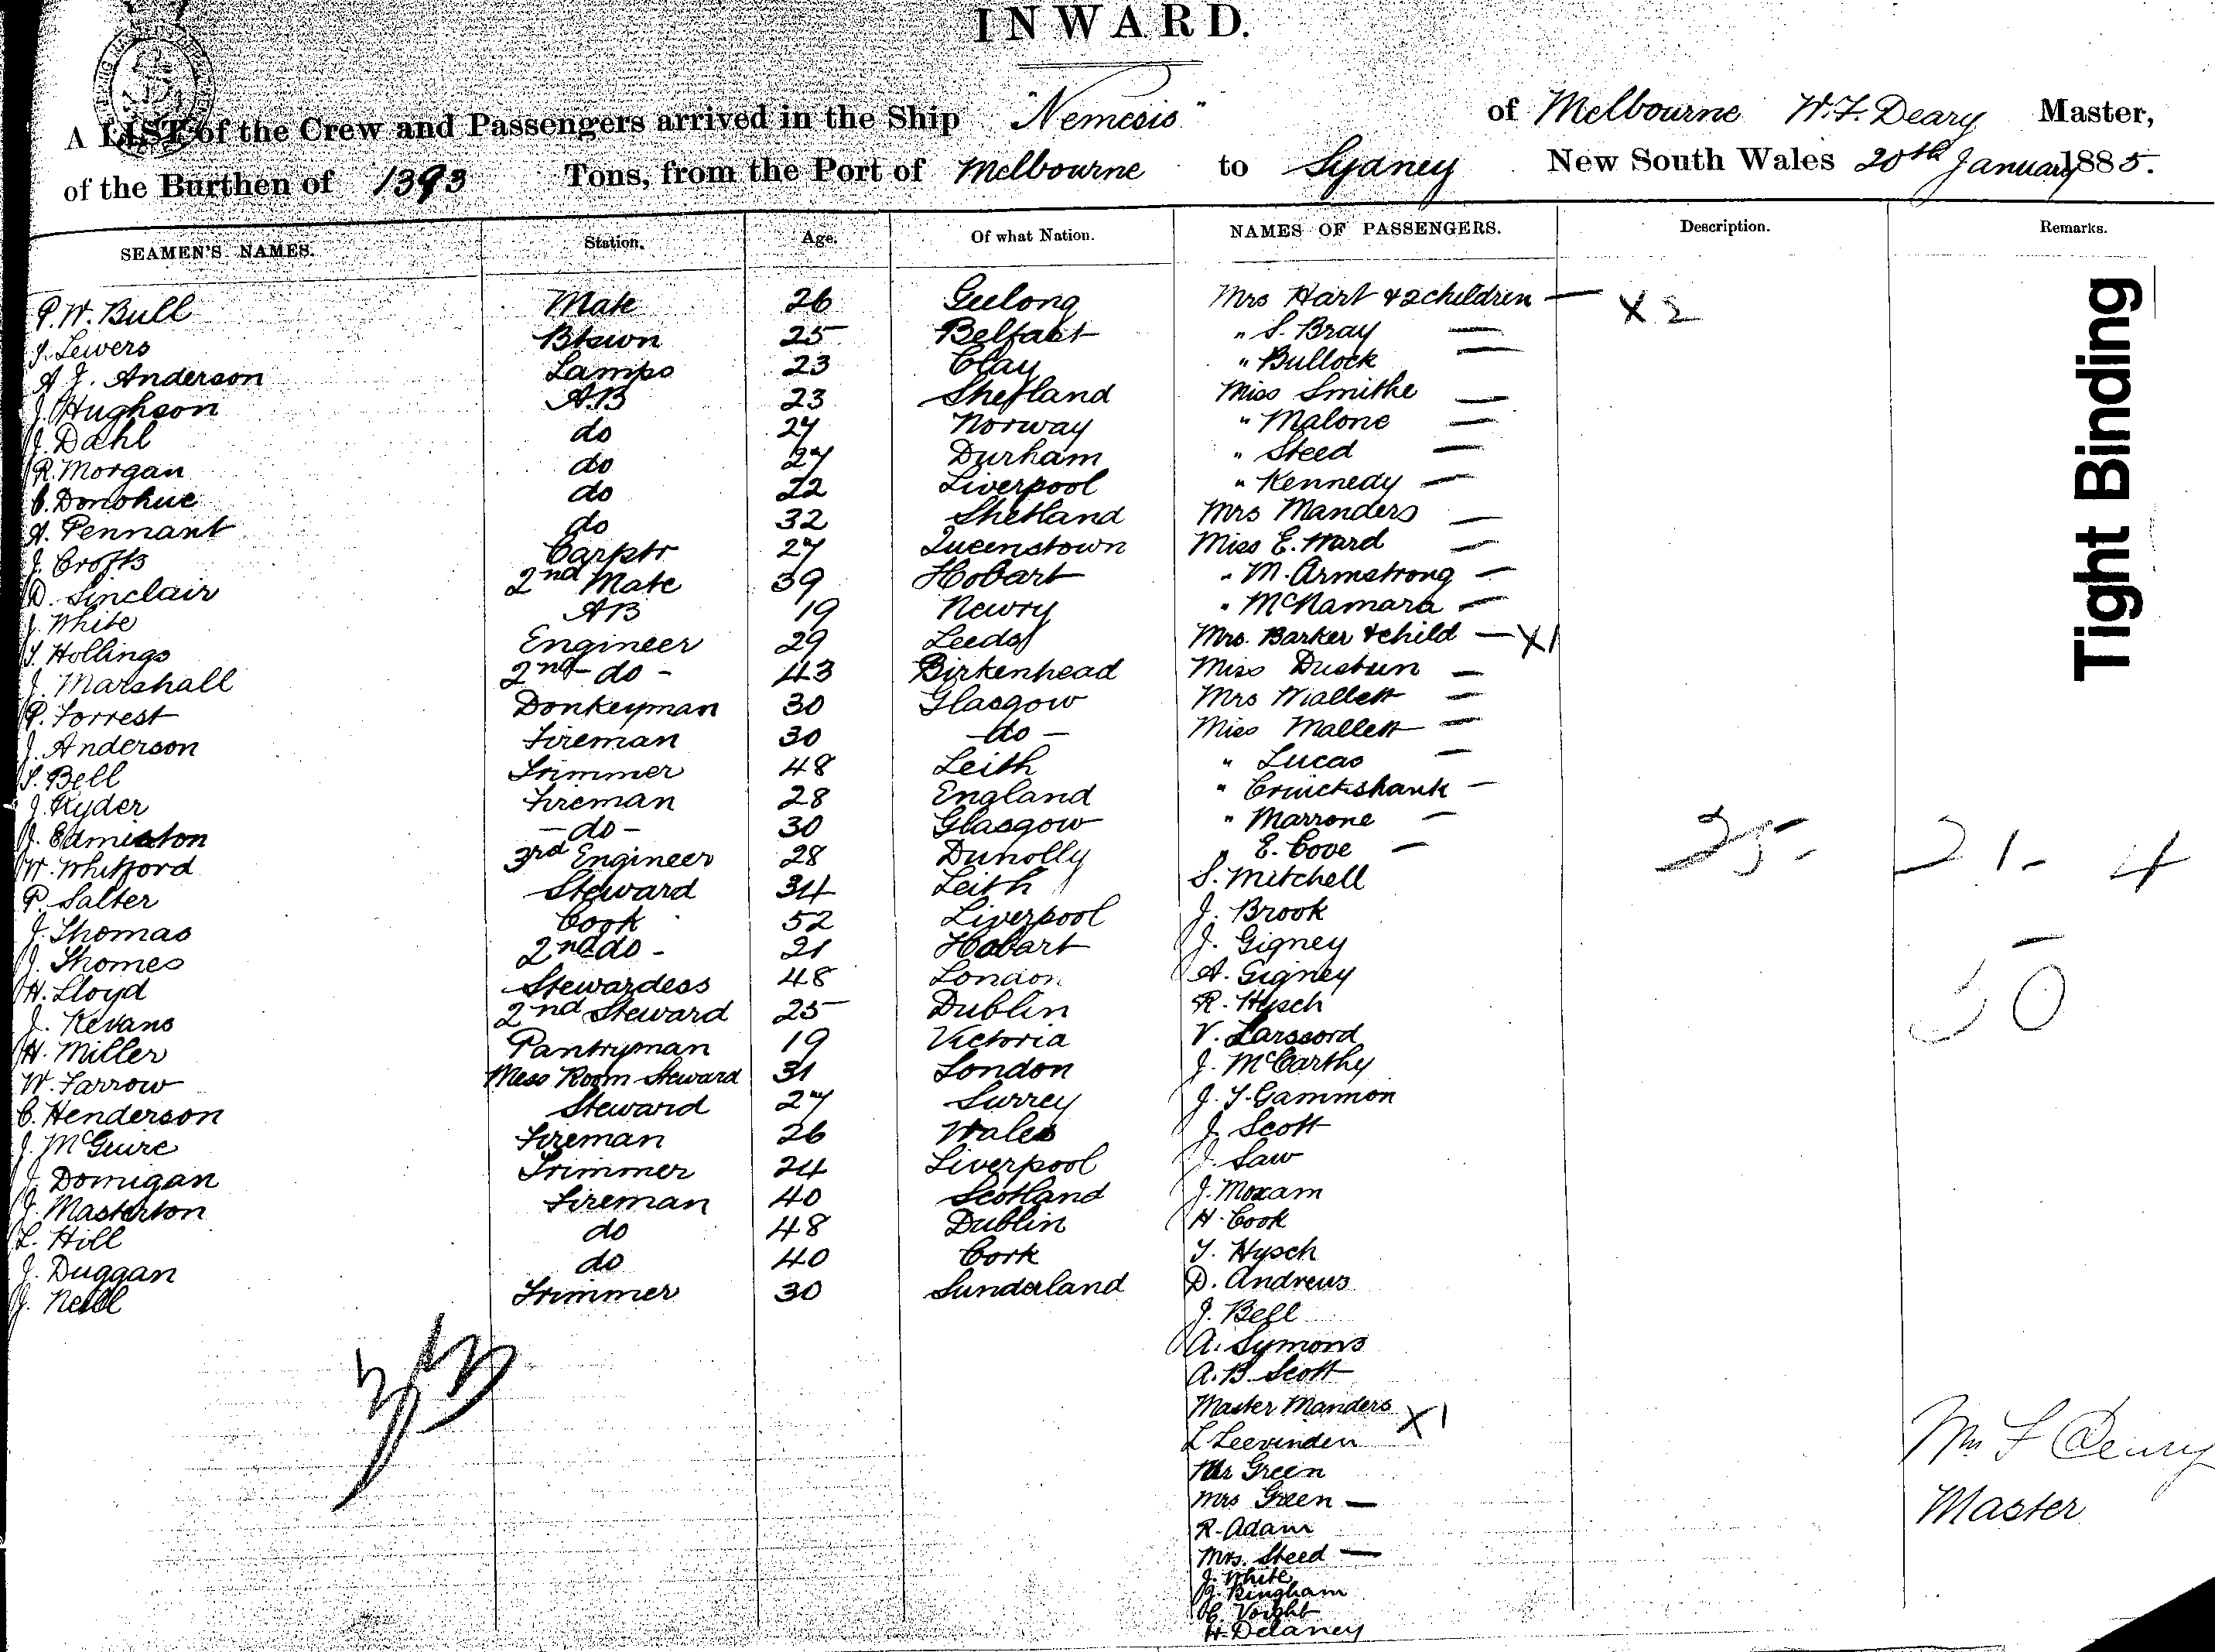 INWARD.
A LIST of the Crew and Passengers arrived in the Ship "Nemesis" of Melbourne W. F. Deary Master,
of the Burthen of 1393 Tons, from the Port of Melbourne to Sydney New South Wales 20th January 1885.
SEAMEN'S NAMES. Station. Age. Of what Nation. NAMES OF PASSENGERS. Description. Remarks.
P. W. Bull Mate 26 Geelong Mrs Hart & 2 children — X 2
J. Lewers Btswn 25 Belfast " S. Bray —
A J. Anderson Lamps 23 Clay " Bullock —
J. Hughson A.B 23 Shetland Miss Smithe —
J. Dahl do 27 Norway " Malone —
R. Morgan do 27 Durham " Steed —
C. Donohue do 22 Liverpool " Kennedy —
A. Pennant do 32 Shetland Mrs Manders —
J. Crofts Carptr 27 Queenstown Miss E. Ward —
D. Sinclair 2nd Mate 39 Hobart " M. Armstrong —
J. White AB 19 Newry " McNamara —
T. Hollings Engineer 29 Leeds Mrs. Barker & child — X1
J. Marshall 2nd - do - 43 Birkenhead Miss Dustun —
P. Forrest Donkeyman 30 Glasgow Mrs Mallett —
J. Anderson Fireman 30 - do - Miss Mallett —
T. Bell Trimmer 48 Leith " Lucas —
J. Ryder Fireman 28 England " Cruickshank —
J. Edmiston - do - 30 Glasgow " Marrone —
W. Whitford 3rd Engineer 28 Dunolly " E. Cove — 25- 21- 4
P. Salter Steward 34 Leith S. Mitchell
J. Thomas Cook 52 Liverpool J. Brook
J. Thomes 2nd do - 21 Hobart J. Gigney
H. Lloyd Stewardess 48 London A. Gigney 50
J. Kevans 2nd Steward 25 Dublin R. Hysch
H. Miller Pantryman 19 Victoria V. Larscord
W. Farrow Mess Room Steward 31 London J. McCarthy
C. Henderson Steward 27 Surrey J. T. Gammon
J. McGuire Fireman 26 Wales J. Scott
J. Domigan Trimmer 24 Liverpool J. Law
J. Masterton Fireman 40 Scotland J. Moxam
L. Hill do 48 Dublin H. Cook
J. Duggan do 40 Cork T. Hysch
J. Neill Trimmer 30 Sunderland D. Andrews
J. Bell
A. Symons
A. B. Scott
Master Manders X1
L Leevinden
Mr Green
Mrs Green —
R. Adam
Mrs. Steed —
J. White
J. Bingham
C. Voight
H. Delaney
Wm F Deary
Master
Tight Binding